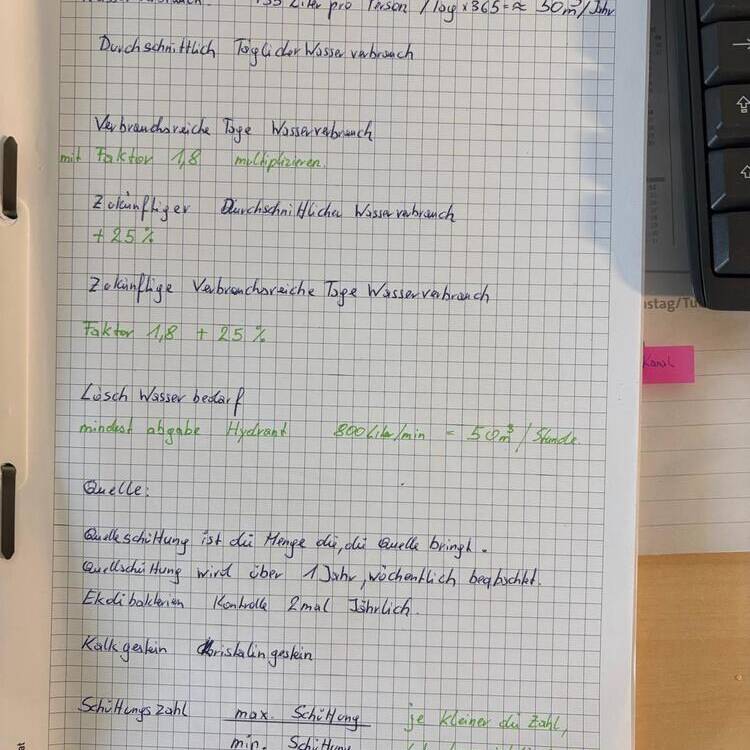 135 Liter pro Person / Tag x 365 = ≈ 50m³/Jahr
Durchschnittlich Täglicher Wasserverbrauch
Verbrauchsreiche Tage Wasserverbrauch
mit Faktor 1,8 multiplizieren.
Zukünftiger Durchschnittlicher Wasserverbrauch
+ 25 %
Zukünftige Verbrauchsreiche Tage Wasserverbrauch
Faktor 1,8 + 25 %
Lösch Wasser bedarf
mindest abgabe Hydrant 800 Liter/min = 50m³/Stunde.
Quelle:
Quelleschüttung ist die Menge die, die Quelle bringt.
Quellschüttung wird über 1 Jahr, wöchentlich beobachtet.
Ekolibakterien Kontrolle 2mal Jährlich.
Kalkgestein Kristalingestein
Schüttungszahl max. Schüttung je kleiner die Zahl,
min. Schüttung
nstag/Tu
Kanal